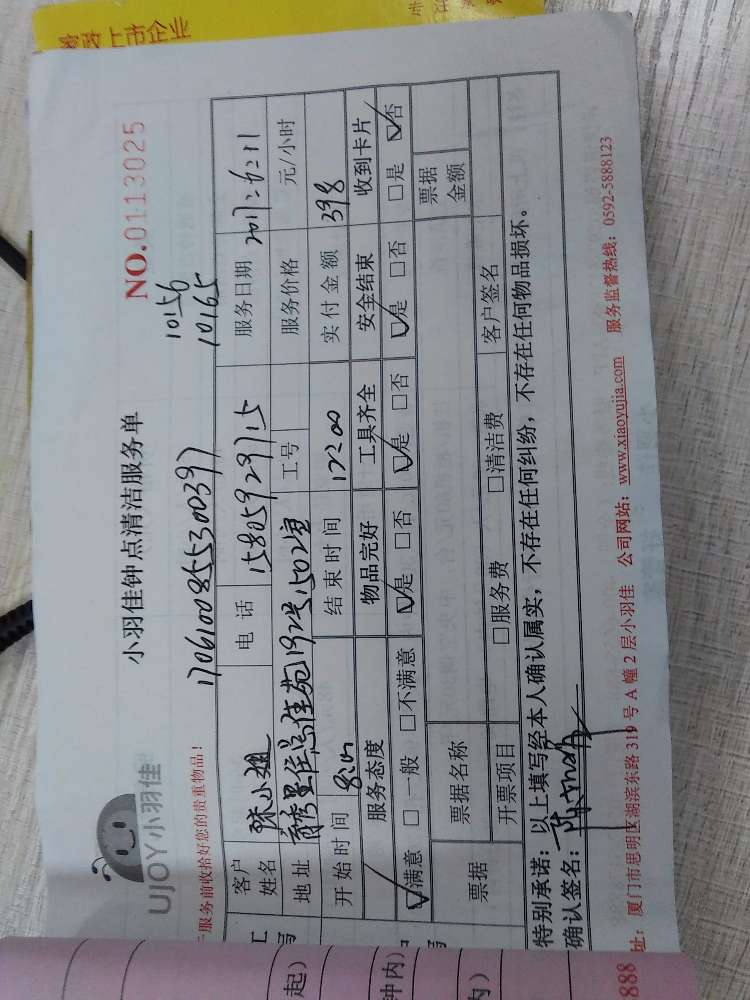 UJOY小羽佳
小羽佳钟点清洁服务单
NO.0113025
服务前收拾好您的贵重物品！
1706100855300397
10156
10165
客户姓名 陈小姐 电话 15805929715 服务日期 2017.6.11
地址 192号1502室 工号 服务价格 元/小时
开始时间 8:00 结束时间 12:00 实付金额 398
服务态度 物品完好 工具齐全 安全结束 收到卡片
☑满意 □一般 □不满意 ☑是 □否 ☑是 □否 ☑是 □否 □是 ☑否
票据 票据名称 票据金额
开票项目 □服务费 □清洁费 客户签名
特别承诺：以上填写经本人确认属实，不存在任何纠纷，不存在任何物品损坏。
确认签名：
址：厦门市思明区湖滨东路319号A幢2层小羽佳 公司网站：www.xiaoyujia.com 服务监督热线：0592-5888123
起）
钟内）
内）
888